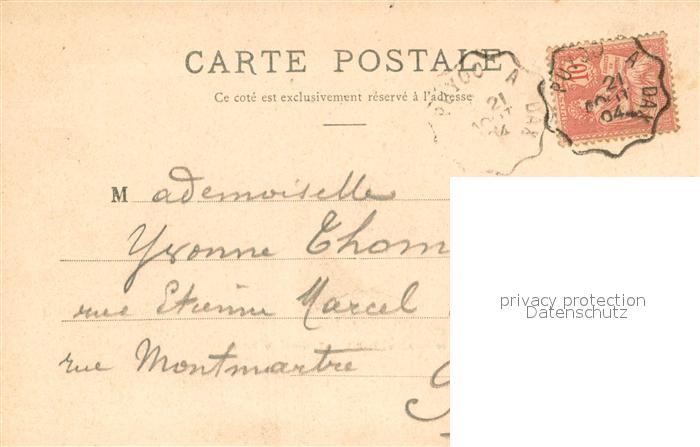 CARTE POSTALE
Ce coté est exclusivement réservé à l'adresse
PUYOO A DAX
21
04
PUYOO A DAX
21
04
10
Mademoiselle
Yvonne Thom
rue Etienne Marcel
rue Montmartre
privacy protection
Datenschutz